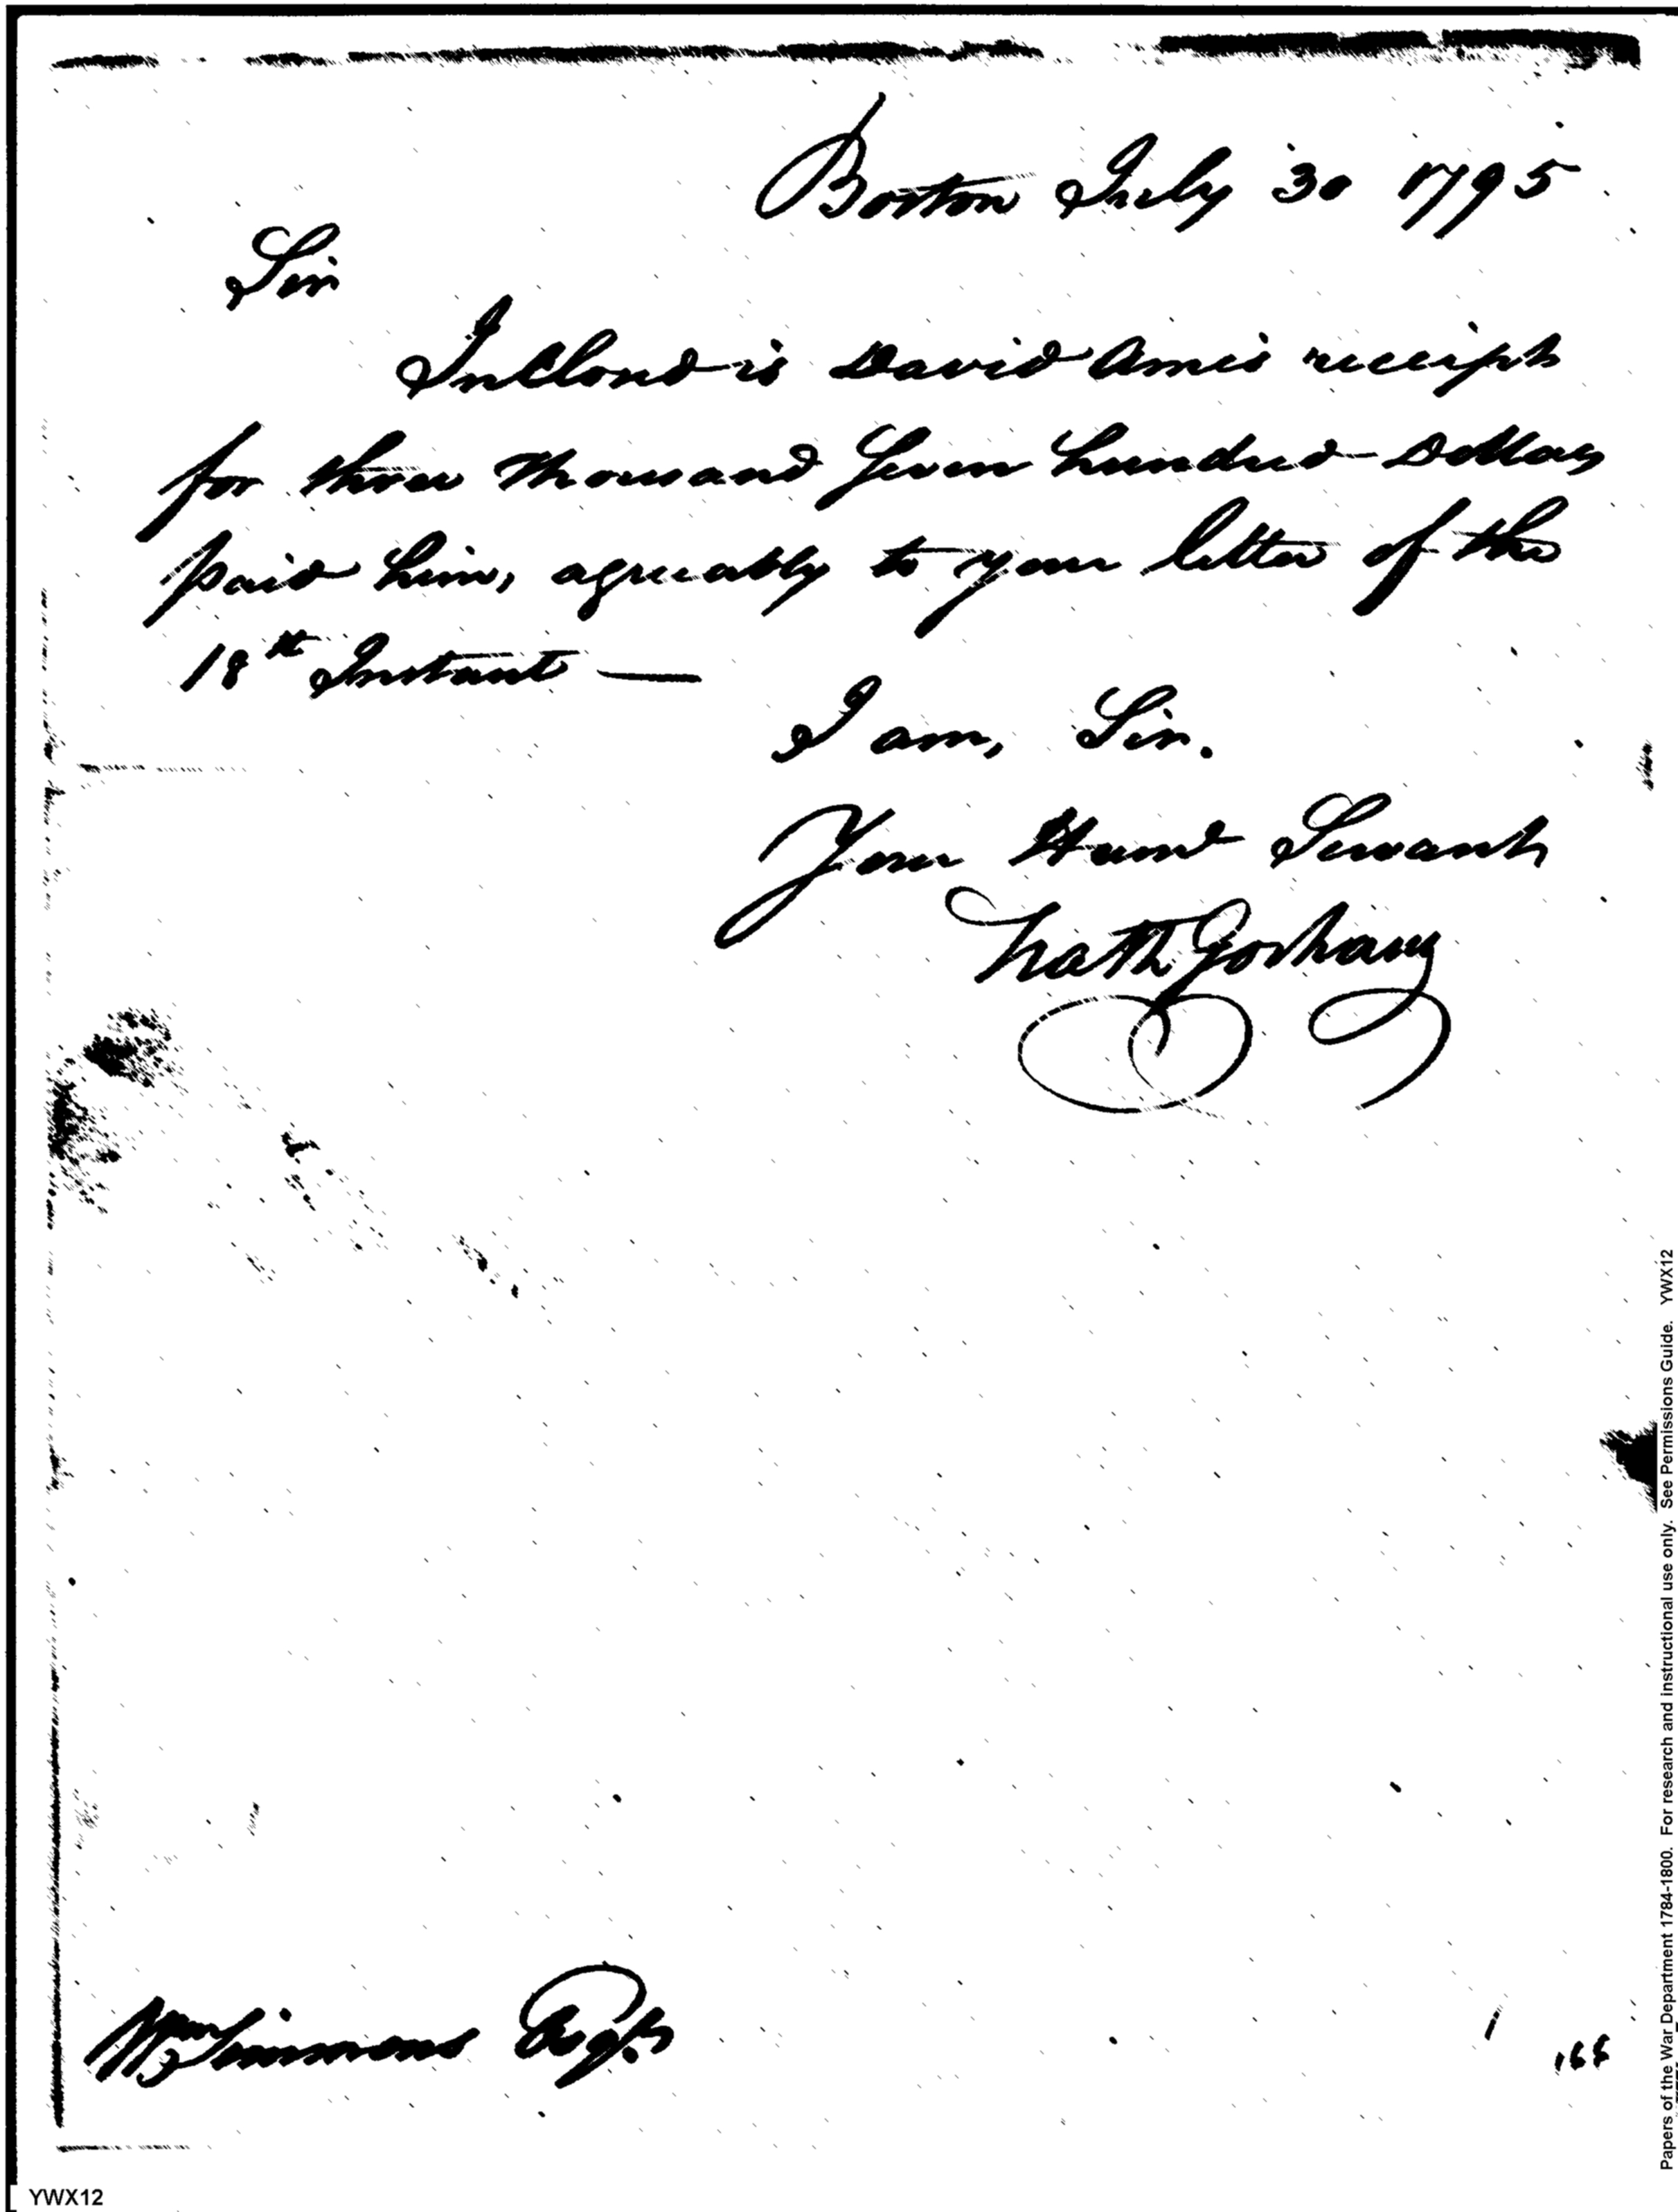 Boston July 30 1795
Sir
Inclosed is David Ames receipt
for three thousand Seven hundred Dollars
paid him, agreeably to your letter of the
18th Instant —
I am, Sir.
Your Humb Servant
Nath Gorham
Wm Simmons Esqr
166
Papers of the War Department 1784-1800. For research and instructional use only. See Permissions Guide. YWX12
YWX12